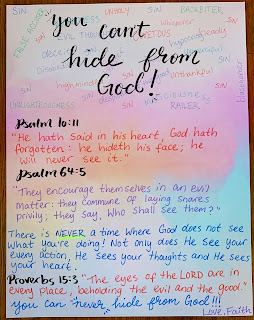 SIN UNHOLY BACKBITER
FALSE ACCUSER SIN Whisperer SIN
You can't
EVIL THOUGHTS
deceit hypocrisy
hide from
highminded Unthankful
God!
SIN MALICIOUSNESS
UNRIGHTEOUSNESS SIN RAILER
SIN blasphemer
Psalm 10:11
"He hath said in his heart, God hath
forgotten: he hideth his face; he
will never see it."
Psalm 64:5
"They encourage themselves in an evil
matter: they commune of laying snares
privily; they say, Who shall see them?"
There is NEVER a time where God does not see
what you're doing! Not only does He see your
every action, He sees your thoughts and He sees
your heart.
Proverbs 15:3 "The eyes of the LORD are in
every place, beholding the evil and the good."
You can "never" hide from God!!!
Love, Faith